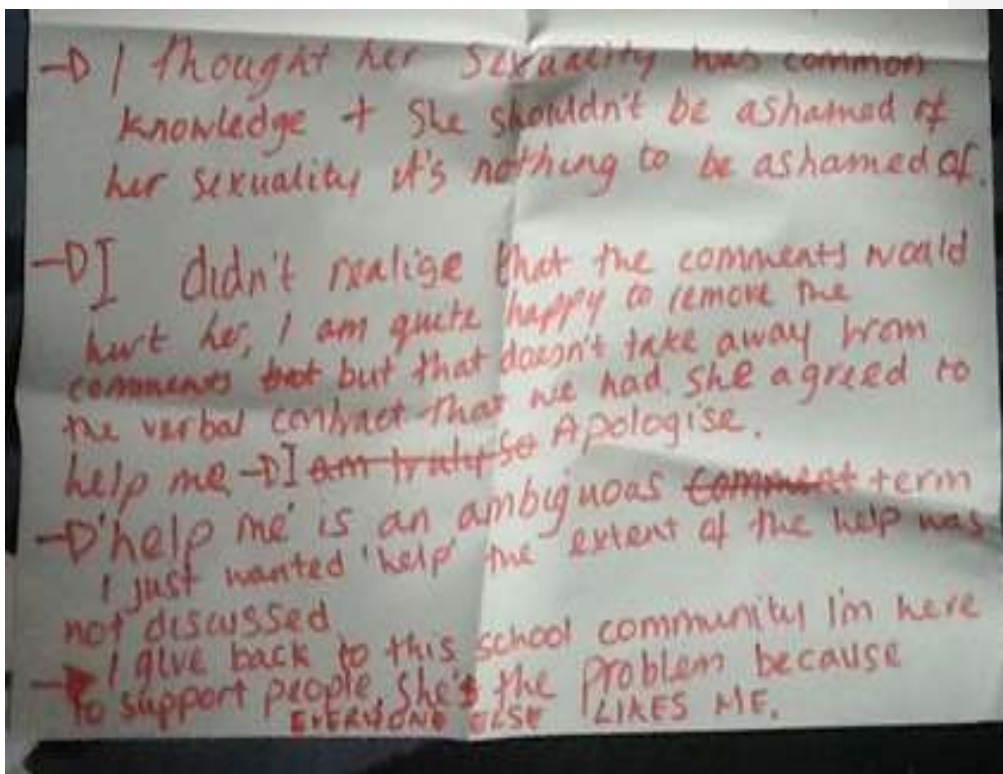 → I thought her sexuality was common
knowledge + She shouldn't be ashamed of
her sexuality it's nothing to be ashamed of.
→ I didn't realise that the comments would
hurt her, I am quite happy to remove the
comments but but that doesn't take away from
the verbal contract that we had. She agreed to
help me → I am truly so Apologise.
→ 'help me' is an ambiguous comment term
I just wanted 'help' the extent of the help was
not discussed
→ I give back to this school community I'm here
to support people, she's the problem because
EVERYONE ELSE LIKES ME.